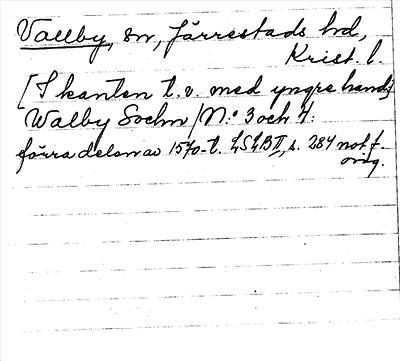 Vallby, sn, Järrestads hd,
Krist. l.
[I kanten t.v. med yngre hand]
Walby Sochn / N:o 3 och 4:
förra delen av 1570-t. LSLBII, s. 284 not f.
orig.